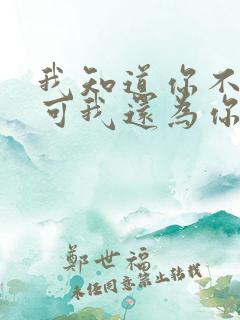 我知道你不
可我還為你
鄭世福
未經同意禁止轉載